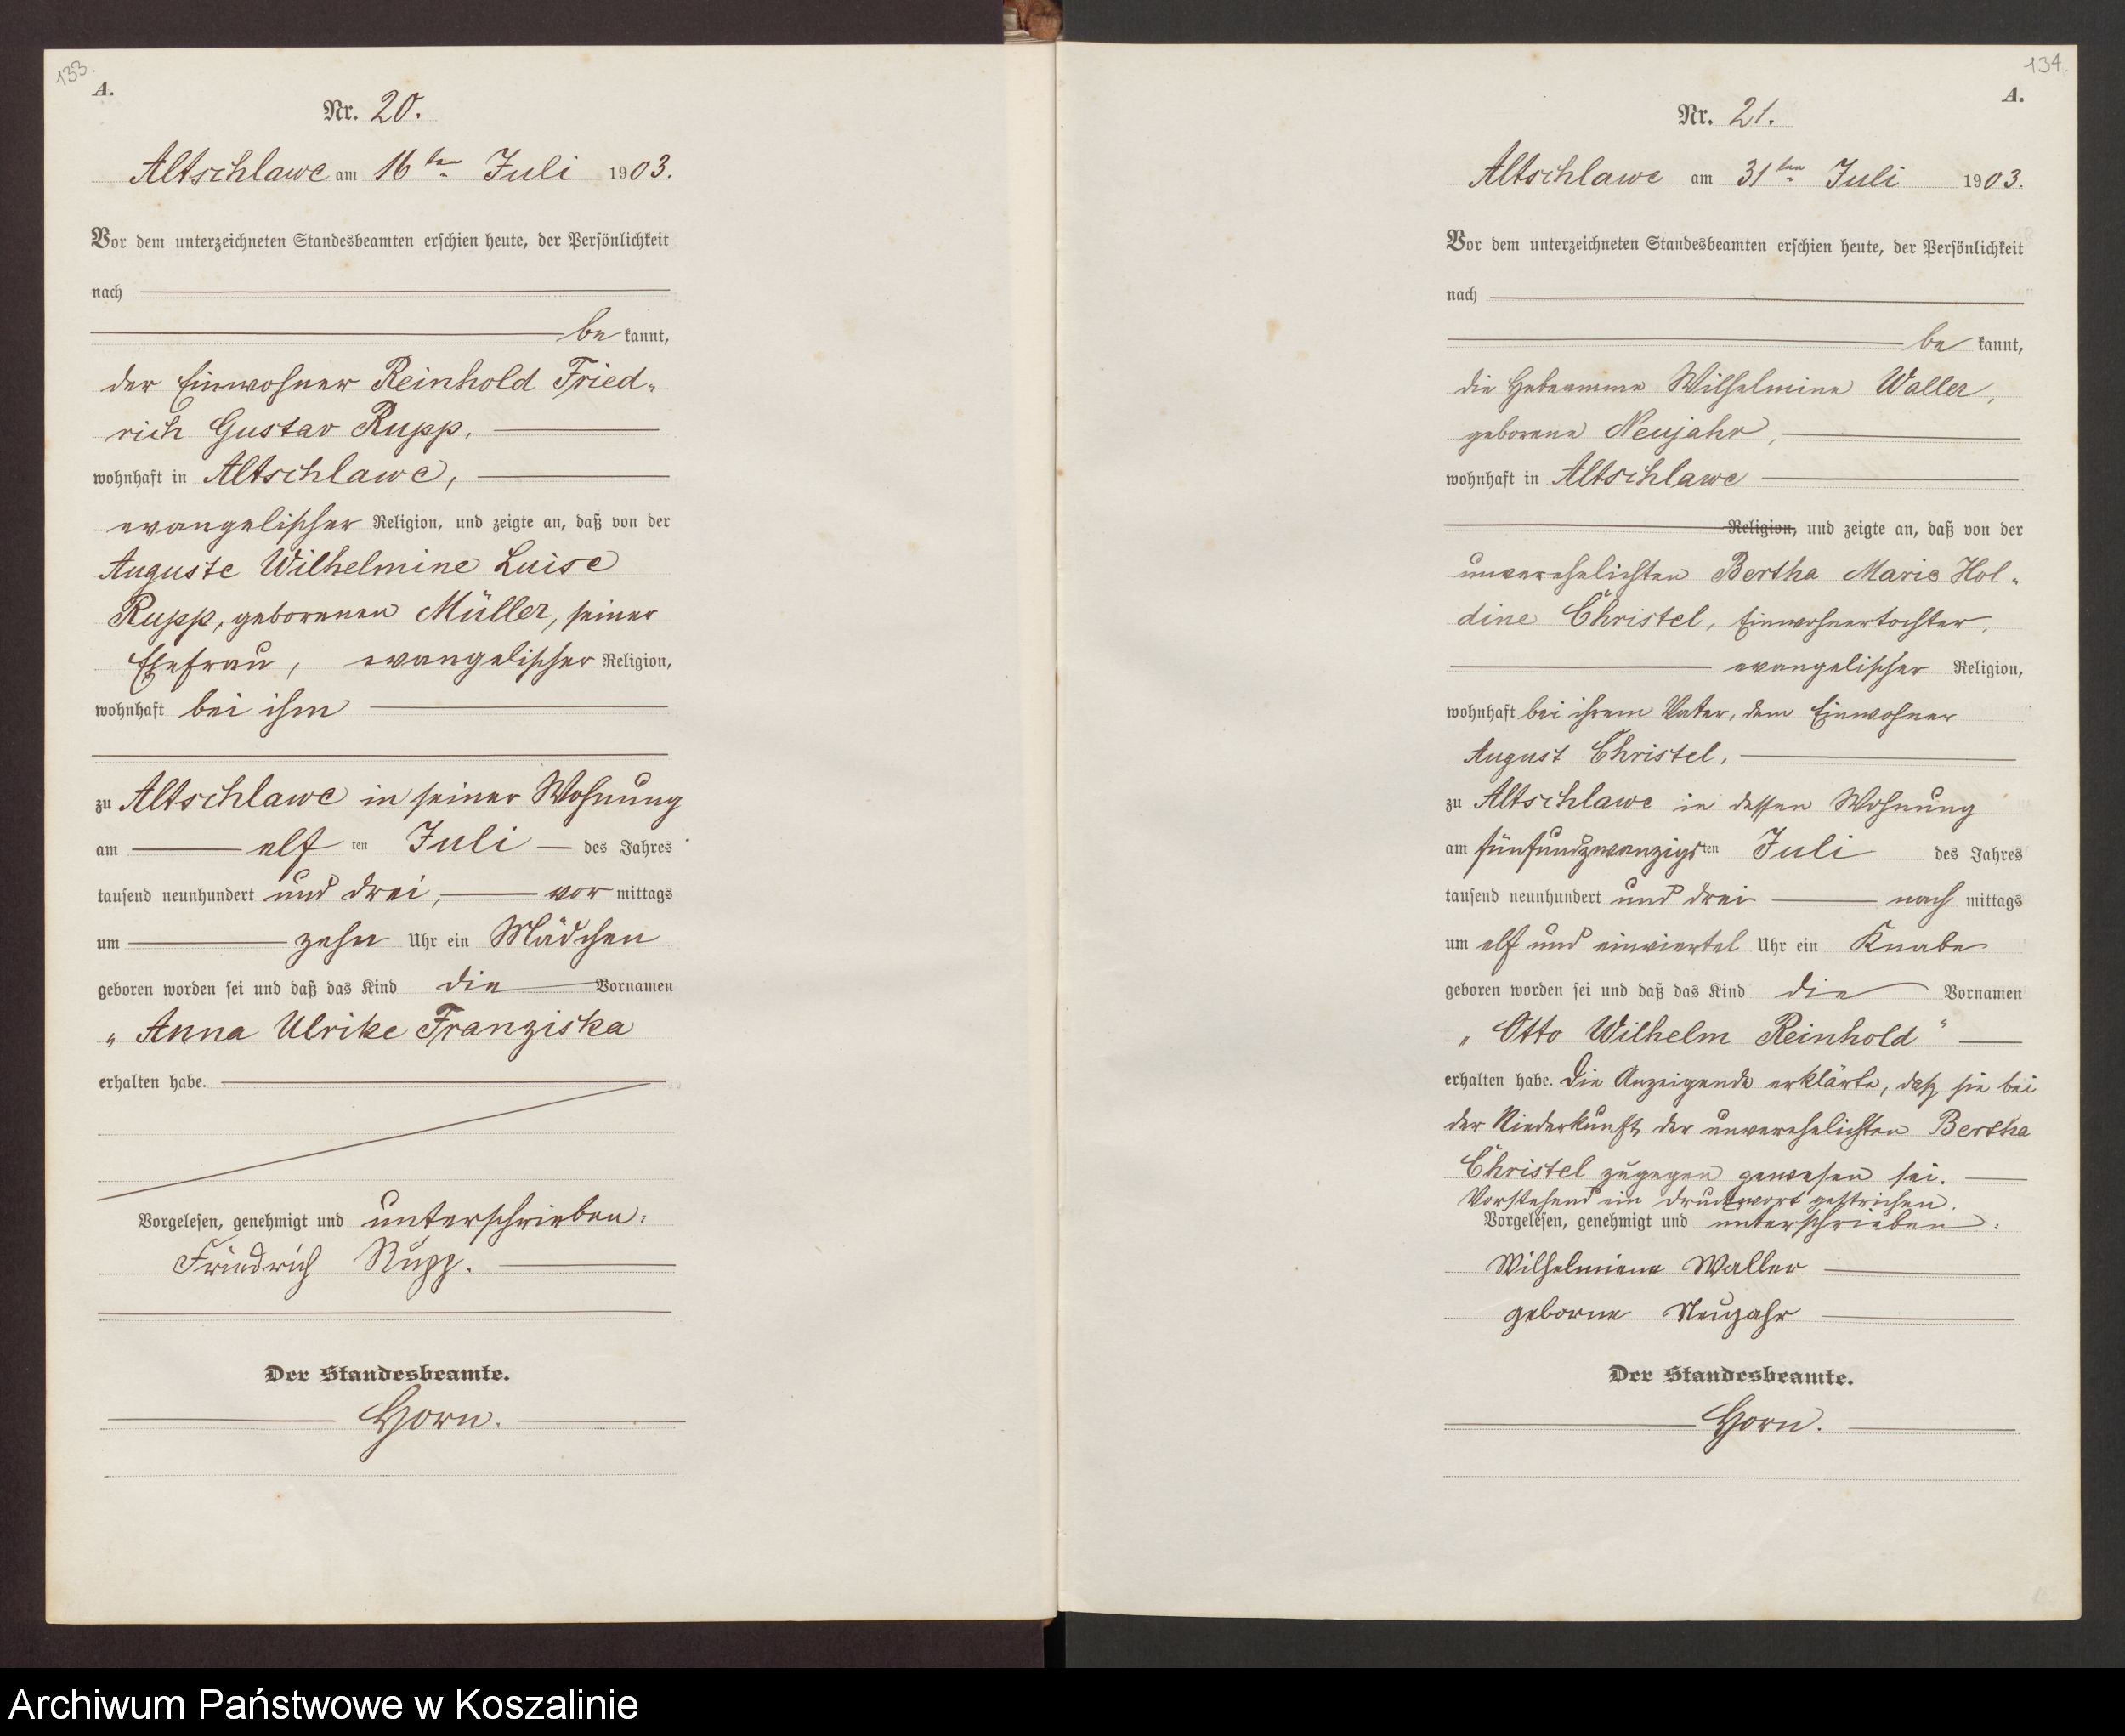 133.
A.
Nr. 20.
Altschlawe am 16ten Juli 1903.
Vor dem unterzeichneten Standesbeamten erschien heute, der Persönlichkeit
nach
be kannt,
der Einwohner Reinhold Fried-
rich Gustav Rupp,
wohnhaft in Altschlawe,
evangelischer Religion, und zeigte an, daß von der
Auguste Wilhelmine Luise
Rupp, geborenen Müller, seiner
Ehefrau, evangelischer Religion,
wohnhaft bei ihm
zu Altschlawe in seiner Wohnung
am elf ten Juli des Jahres
tausend neunhundert und drei, vor mittags
um zehn Uhr ein Mädchen
geboren worden sei und daß das Kind die Vornamen
„Anna Ulrike Franziska
erhalten habe.
Vorgelesen, genehmigt und unterschrieben:
Friedrich Rupp.
Der Standesbeamte.
Horn.
134.
A.
Nr. 21.
Altschlawe am 31ten Juli 1903.
Vor dem unterzeichneten Standesbeamten erschien heute, der Persönlichkeit
nach
be kannt,
die Hebeamme Wilhelmine Waller,
geborene Neujahr,
wohnhaft in Altschlawe
Religion, und zeigte an, daß von der
unverehelichten Bertha Marie Hol-
dine Christel, Einwohnertochter,
evangelischer Religion,
wohnhaft bei ihrem Vater, dem Einwohner
August Christel,
zu Altschlawe in dessen Wohnung
am fünfundzwanzigsten Juli des Jahres
tausend neunhundert und drei nach mittags
um elf und einviertel Uhr ein Knabe
geboren worden sei und daß das Kind die Vornamen
„Otto Wilhelm Reinhold“
erhalten habe. Die Anzeigende erklärte, daß sie bei
der Niederkunft der unverehelichten Bertha
Christel zugegen gewesen sei.
Vorstehend ein Druckwort gestrichen.
Vorgelesen, genehmigt und unterschrieben:
Wilhelmiene Waller
geborne Neujahr
Der Standesbeamte.
Horn.
Archiwum Państwowe w Koszalinie